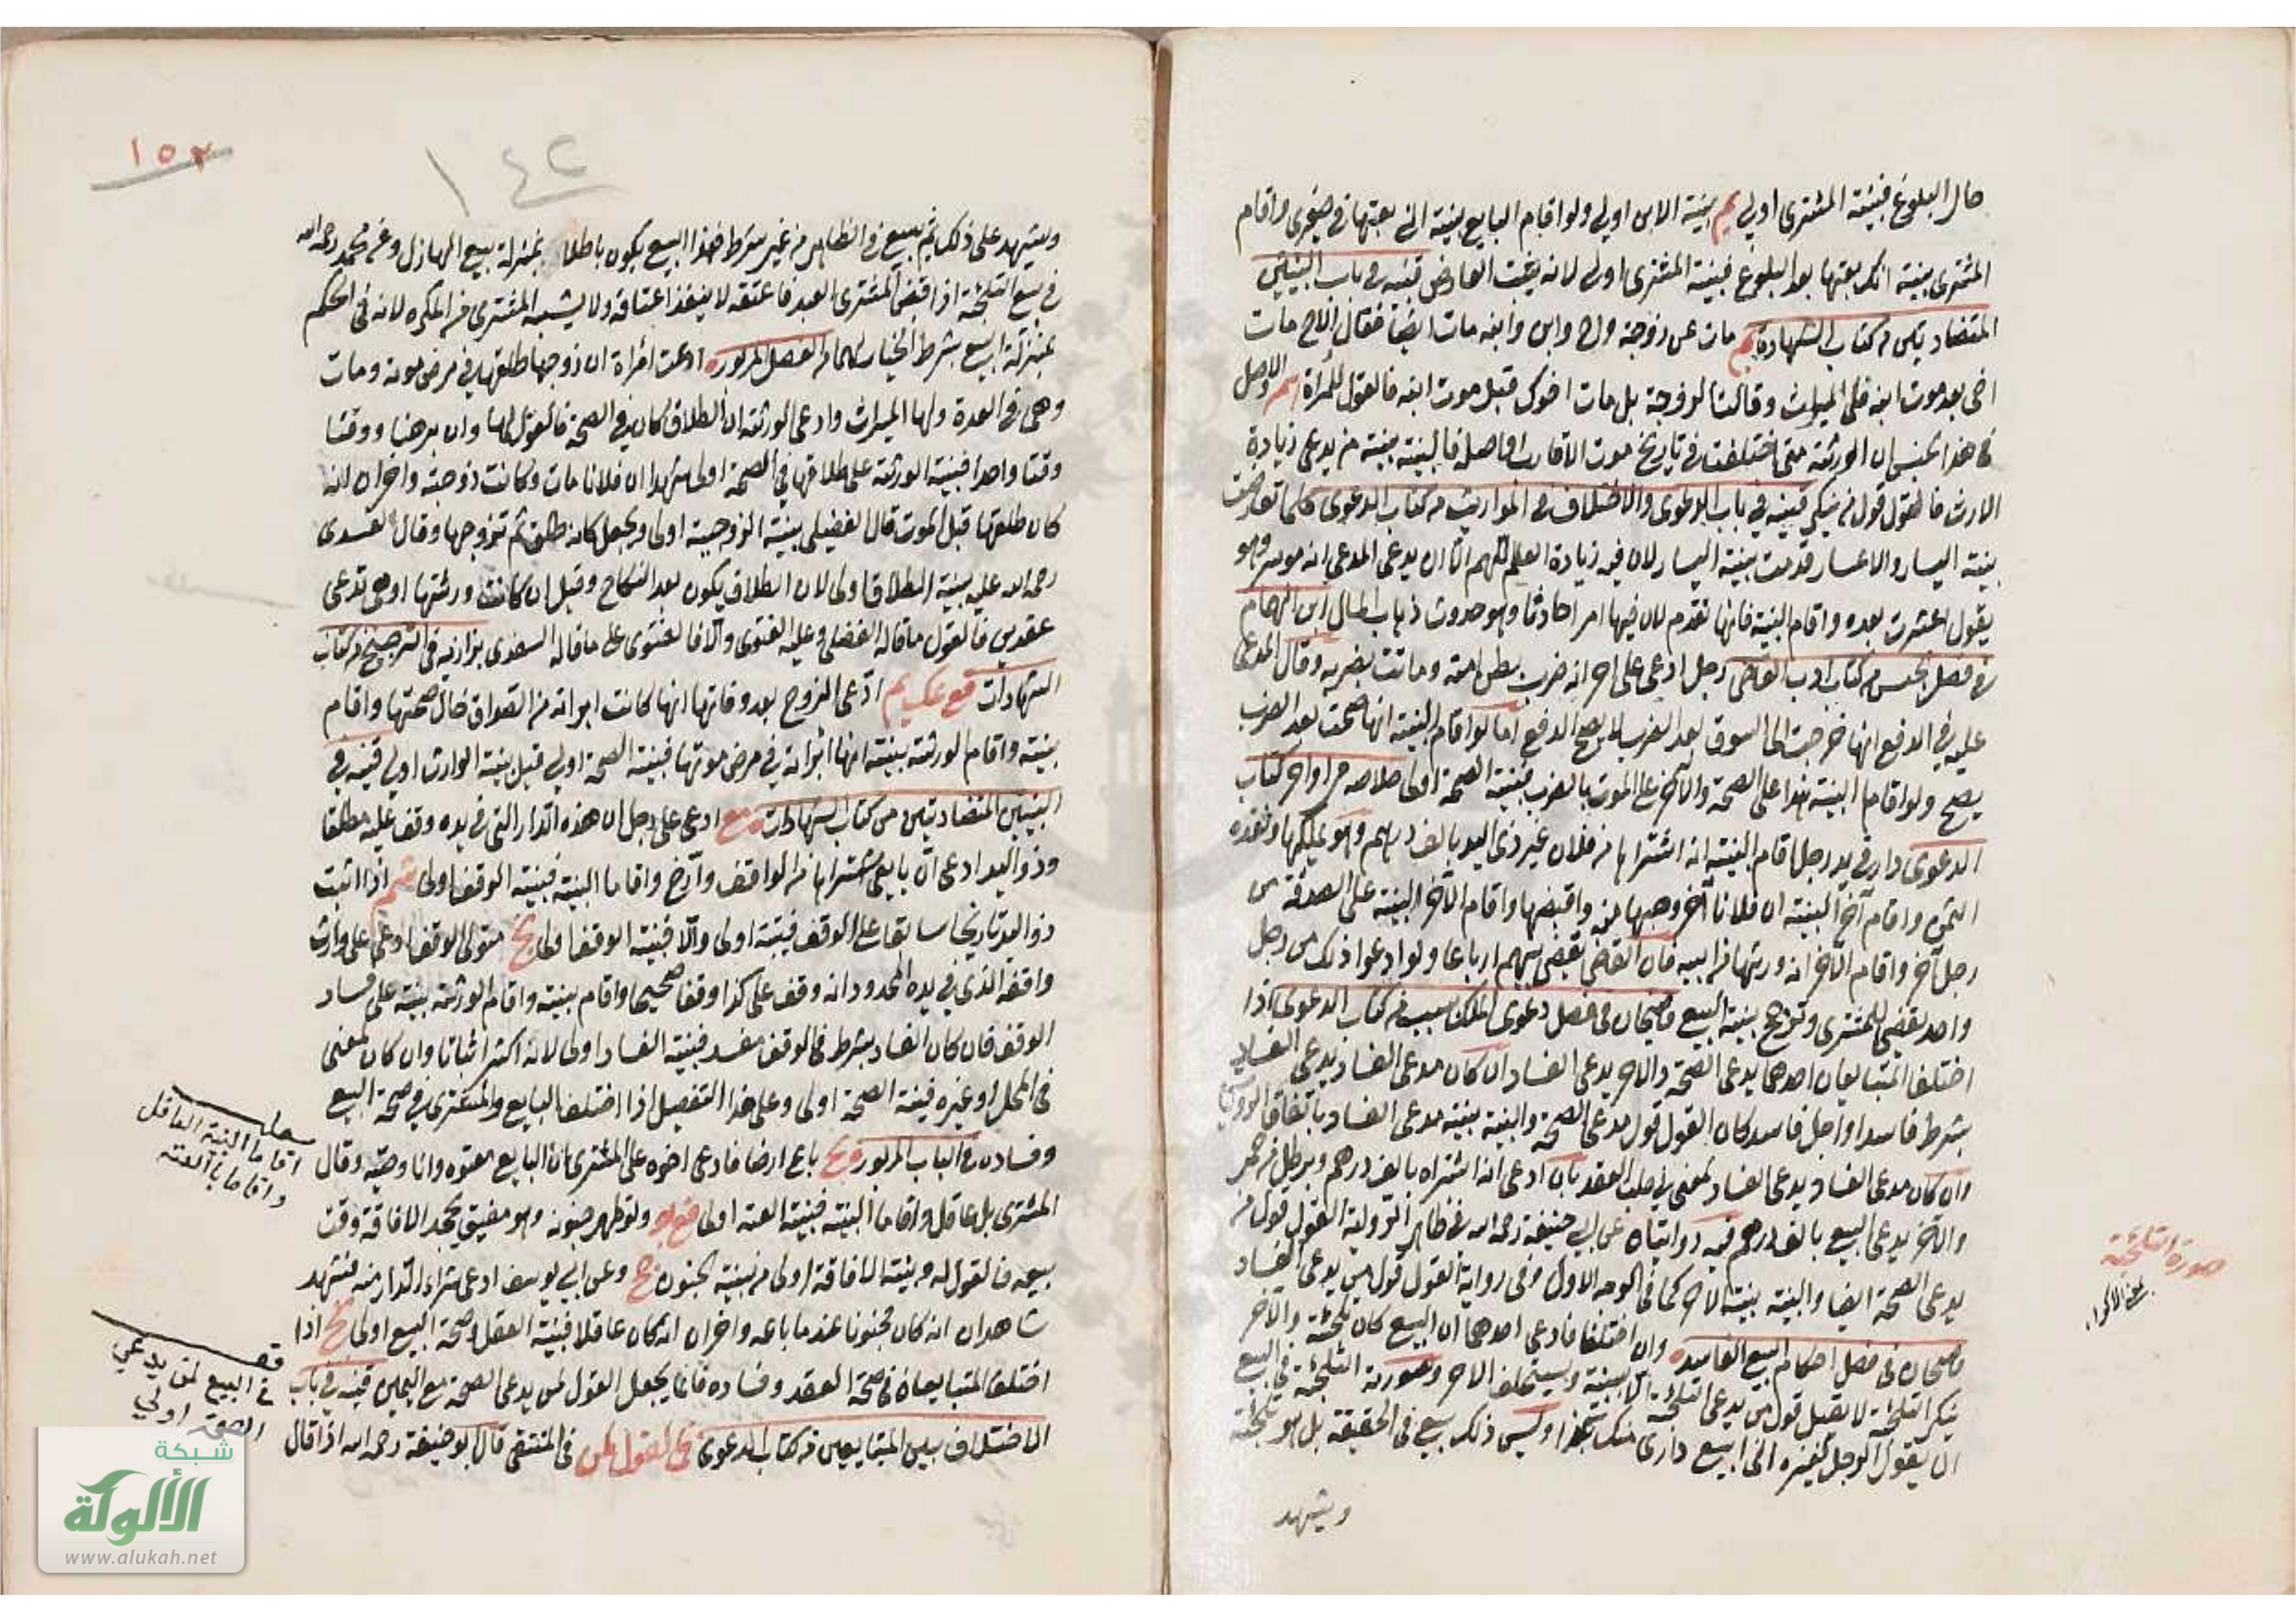 حال البلوغ فبينة المشترى اولى بم بينة الابن اولى ولو اقام البايع بينة انى بعتها فى صغرى واقام
المشترى بينة انك بعتها بعد البلوغ فبينة المشترى اولى لانه يثبت العارض قنيه فى باب البينتين
المتضادتين من كتاب الشهادة مات عن زوجة واخ وابن وابنه مات ايضا فقال الاخ مات
اخى بعد موت ابنه فلى الميراث وقالت الزوجة بل مات اخوك قبل موت ابنه فالقول للمرأة والاصل
فى هذا الجنس ان الورثة متى اختلفت فى تاريخ موت الاقارب فالبينة بينة من يدعى زيادة
الارث فالقول قول من ينكر قنيه فى باب الدعوى والاختلاف فى المواريث من كتاب الدعوى كلما تعارضت
بينة اليسار والاعسار قدمت بينة اليسار لان فيه زيادة العلم اللهم الا ان يدعى المدعى انه موسر وهو
يقول اعسرت بعده واقام البينة فانها تقدم لان فيها امرا حادثا وهو حدوث ذهاب المال ابن الهمام
فى فصل الحبس من كتاب ادب القاضى رجل ادعى على اخر انه ضرب بطن امته وماتت بضربه وقال المدعى
عليه فى الدفع انها خرجت الى السوق بعد الضرب لا يصح الدفع اما لو اقام البينة انها صحت بعد الضرب
يصح ولو اقاما البينة هذا على الصحة والآخر على الموت بالضرب فبينة الصحة اولى خلاصه من اواخر كتاب
الدعوى دار فى يد رجل اقام البينة انه اشتراها من فلان غير ذى اليد بالف درهم وهو يملكها ونقده
الثمن واقام آخر البينة ان فلانا آخر وهبها منه واقبضها واقام الآخر البينة على الصدقة من
رجل آخر واقام الآخر انه ورثها من ابيه فان القاضى يقضى بينهم ارباعا ولو ادعوا ذلك من رجل
واحد يقضى للمشترى وترجح بينة البيع قاضيخان فى فصل دعوى الملك بسبب من كتاب الدعوى اذا
اختلف المتبايعان احدهما يدعى الصحة والآخر يدعى الفساد ان كان مدعى الفساد يدعى الفساد
بشرط فاسد او اجل فاسد كان القول قول مدعى الصحة والبينة بينة مدعى الفساد باتفاق الروايتين
وان كان مدعى الفساد يدعى الفساد لمعنى فى صلب العقد بان ادعى انه اشتراه بالف درهم وبرطل من خمر
والآخر يدعى البيع بالف درهم فيه روايتان عن ابى حنيفة رحمه الله فى ظاهر الرواية القول قول من
يدعى الصحة ايضا والبينة بينة الآخر كما فى الوجه الاول وفى رواية القول قول من يدعى الفساد
قاضيخان فى فصل احكام البيع الفاسد وان اختلفا فادعى احدهما ان البيع كان تلجئة والآخر
ينكر التلجئة لا يقبل قول من يدعى التلجئة الا ببينة ويستحلف الآخر وصورة التلجئة فى البيع
ان يقول الرجل لغيره انى ابيع دارى منك بكذا وليس ذلك بيع فى الحقيقة بل هو تلجئة
ويشهد
صورة التلجئة
١٥٢
١٤٢
ويشهد على ذلك ثم يبيع فى الظاهر من غير شرط فهذا البيع يكون باطلا بمنزلة بيع الهازل وعن محمد رحمه الله
فى بيع التلجئة اذا قبض المشترى العبد فاعتقه لا ينفذ اعتاقه ولا يشبه المشترى من المكره لانه فى الحكم
بمنزلة البيع بشرط الخيار لهما من الفصل المزبور ادعت امرأة ان زوجها طلقها فى مرض موته ومات
وهى فى العدة ولها الميراث وادعى الورثة ان الطلاق كان فى الصحة فالقول لها وان برهنا ووقتا
وقتا واحدا فبينة الورثة على طلاقها فى الصحة اولى شهدا ان فلانا مات وكانت زوجته واخران انه
كان طلقها قبل الموت قال الفضيلى بينة الزوجية اولى ويجعل كانه طلق ثم تزوجها وقال السغدى
رحمه الله عليه بينة الطلاق اولى لان الطلاق يكون بعد النكاح وقيل ان كانت ورثتها او هى تدعى
عقدين فالقول ما قاله الفضلى وعليه الفتوى والا فالفتوى على ما قاله السغدى بزازيه فى الترجيح من كتاب
الشهادات قع عك بم ادعى الزوج بعد وفاتها انها كانت ابرأته من الصداق حال صحتها واقام
بينة واقام الورثة بينة انها ابرأته فى مرض موتها فبينة الصحة اولى قيل بينة الوارث اولى قنيه فى
البينتين المتضادتين من كتاب الشهادات مع ادعى على رجل ان هذه الدار التى فى يده وقف عليه مطلقا
وذو اليد ادعى ان بايعى اشتراها من الواقف وارخ واقاما البينة فبينة الوقف اولى شم اذا اثبت
ذو اليد تاريخا سابقا على الوقف فبينته اولى والا فبينة الوقف اولى بخ متولى الوقف ادعى على وارث
واقفه الذى فى يده المحدود انه وقف على كذا وقفا صحيحا واقام بينة واقام الورثة بينة على فساد
الوقف فان كان الفساد بشرط فى الوقف مفسد فبينة الفساد اولى لانه اكثر اثباتا وان كان لمعنى
فى المحل او غيره فبينة الصحة اولى وعلى هذا التفصيل اذا اختلف البايع والمشترى فى صحة البيع
وفساده فى الباب المزبور باع ارضا فادعى اخوه على المشترى ان البايع معتوه وانا وصيه وقال
المشترى بل عاقل واقاما البينة فبينة العته اولى ولو ظهر جنونه وهو مفيق يجحد الافاقة وقت
بيعه فالقول له وبينة الافاقة اولى من بينة الجنون وعن ابى يوسف ادعى شراء الدار منه فشهد
شاهدان انه كان مجنونا عند ما باعه واخران انه كان عاقلا فبينة العقل وصحة البيع اولى اذا
اختلف المتبايعان فى صحة العقد وفساده فانما يجعل القول لمن يدعى الصحة مع اليمين قنيه فى باب
الاختلاف بين المتبايعين من كتاب الدعوى فى القول لمن فى المنتقى قال ابو حنيفة رحمه الله اذا قال
اقاما البينة العاقل
واقاما بالعته
فى البيع لمن يدعى
الصحة اولى
شبكة
الألوكة
www.alukah.net